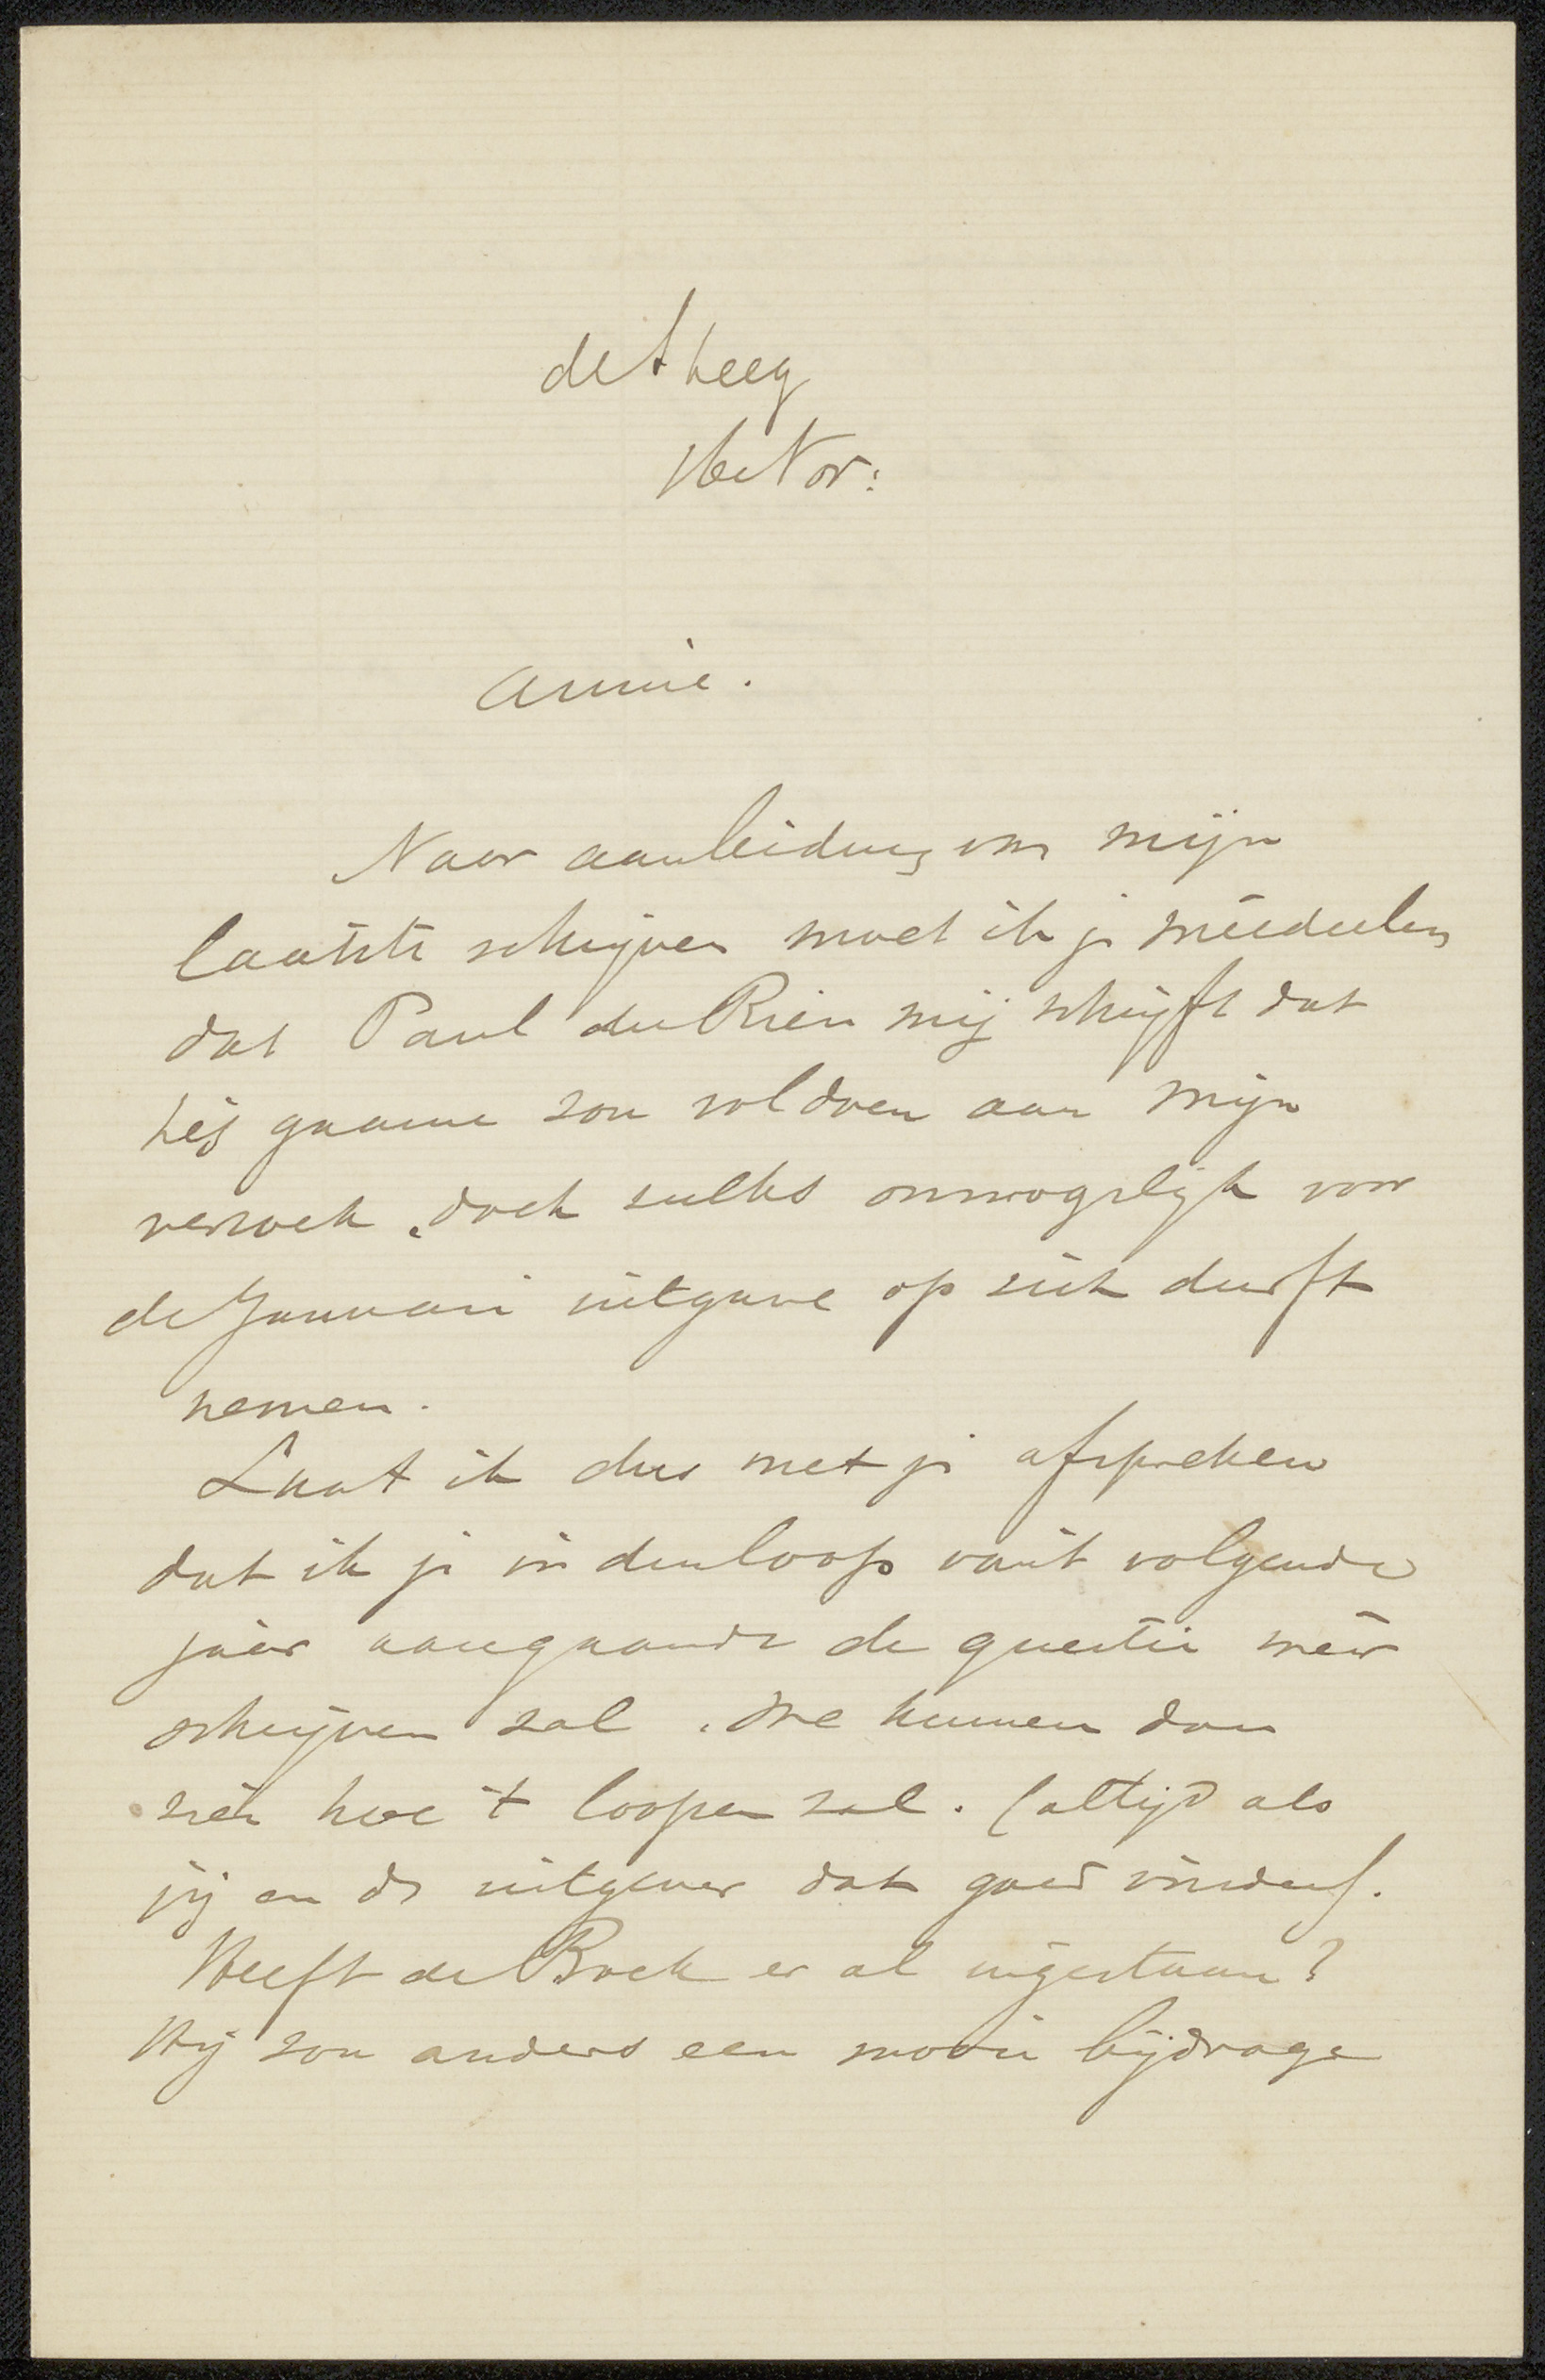 Amice.
Naar aanleiding van mijn
laatste schrijven moet ik je meedeelen
dat Paul du Rieu mij schrijft dat
hij gaarne zou voldoen aan mijn
verzoek, doch zulks onmogelijk voor
de Januari uitgave op zich durft
nemen.
Laat ik dus met je afspreken
dat ik je in den loop van 't volgende
jaar aangaande de questie meer
schrijven zal. We kunnen dan
zien hoe 't loopen zal. (altijd als
jij en de uitgever dat goed vinden).
Heeft de Bock er al ingestaan?
Hij zou anders een mooie bijdrage